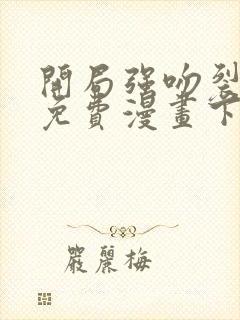 開局強吻裂
免費漫畫下
嚴麗梅